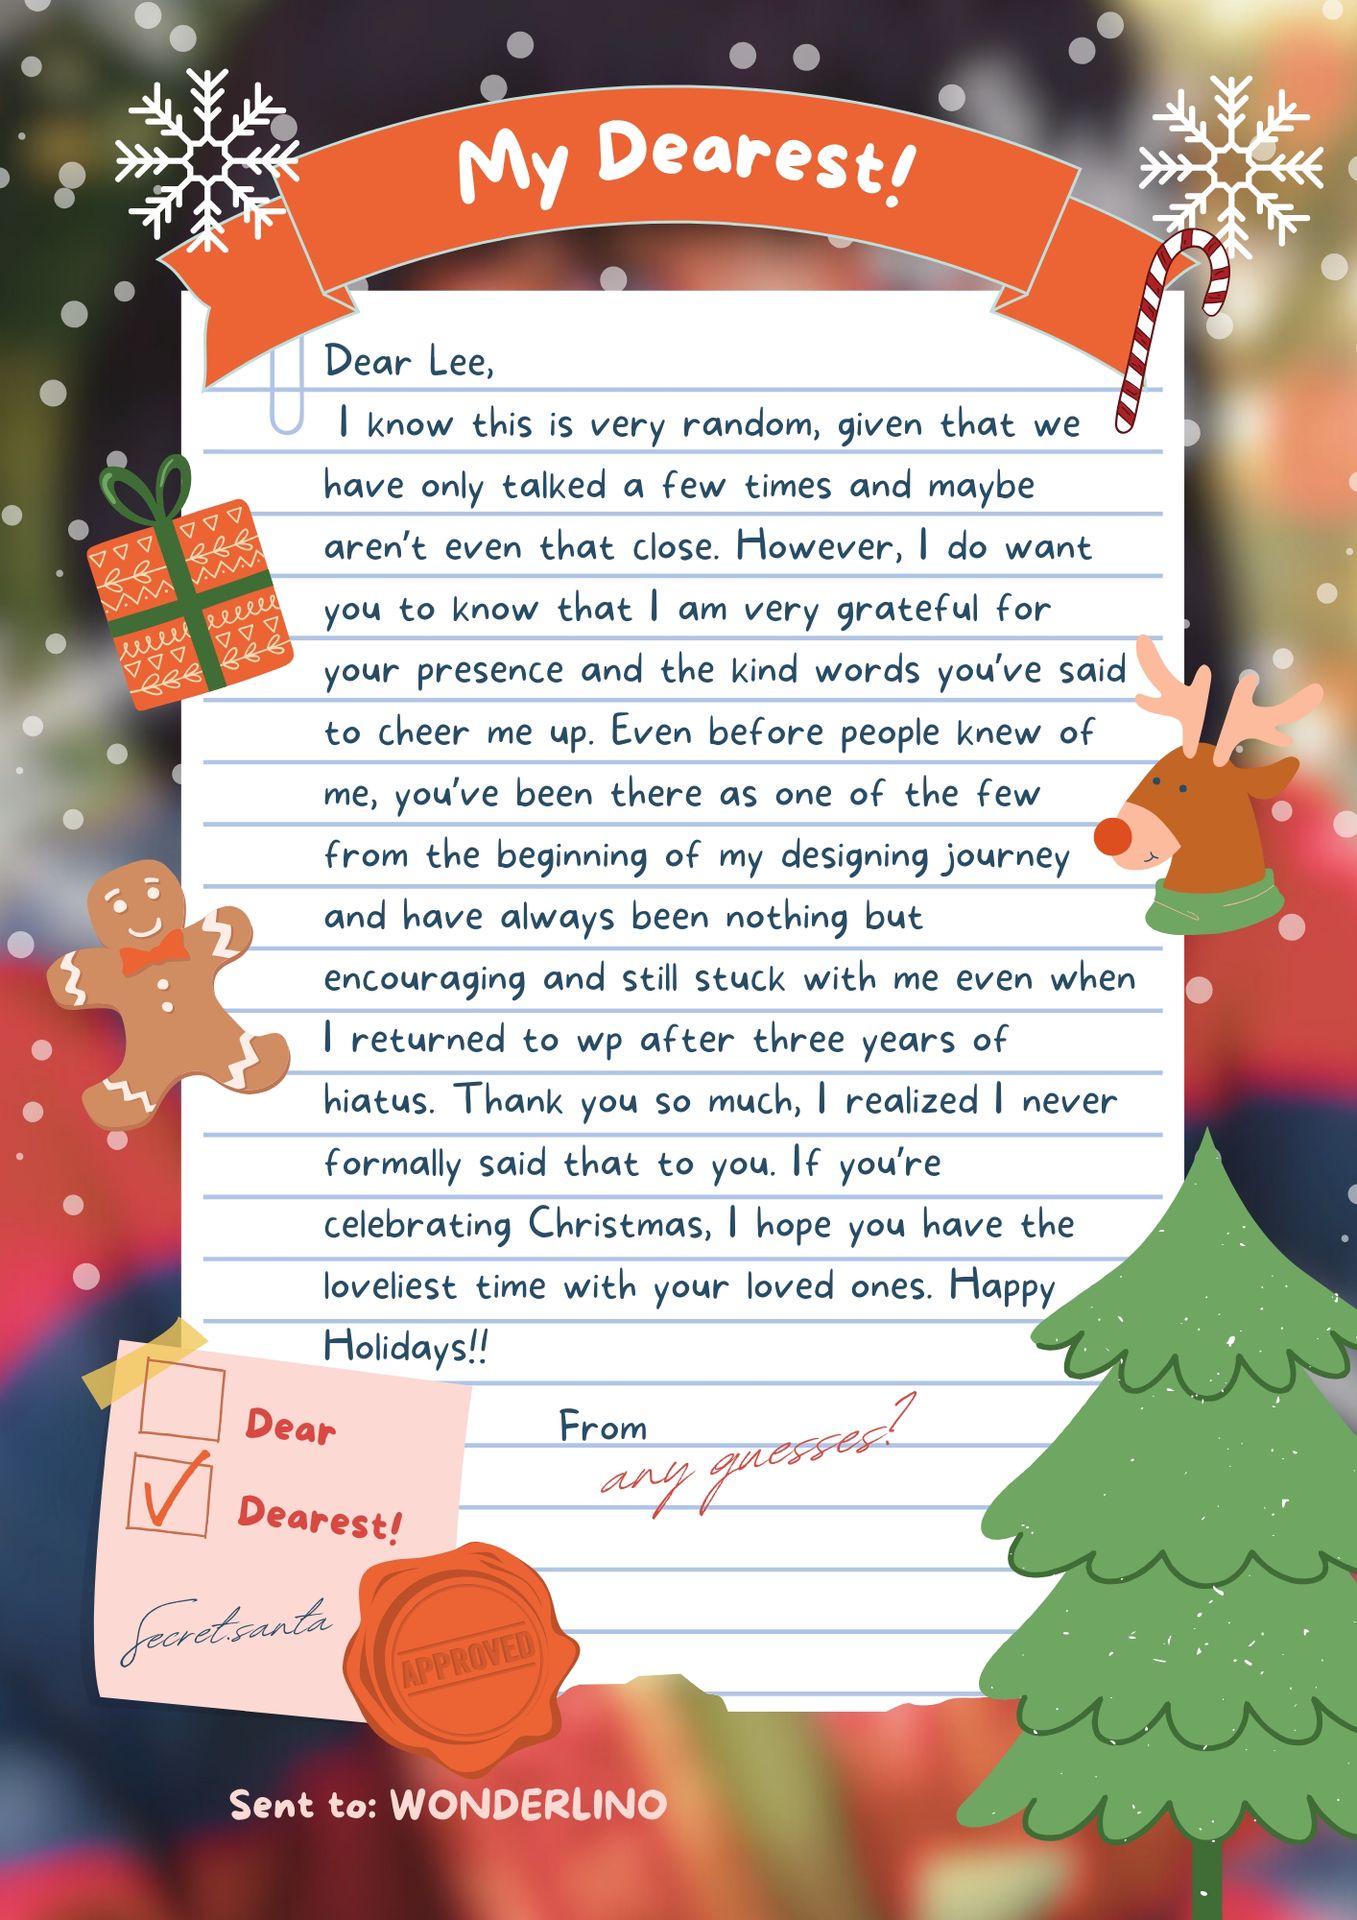 My Dearest!
Dear Lee,
I know this is very random, given that we
have only talked a few times and maybe
aren't even that close. However, I do want
you to know that I am very grateful for
your presence and the kind words you've said
to cheer me up. Even before people knew of
me, you've been there as one of the few
from the beginning of my designing journey
and have always been nothing but
encouraging and still stuck with me even when
I returned to wp after three years of
hiatus. Thank you so much, I realized I never
formally said that to you. If you're
celebrating Christmas, I hope you have the
loveliest time with your loved ones. Happy
Holidays!!
From
any guesses?
Dear
Dearest!
Secret.santa
APPROVED
Sent to: WONDERLINO